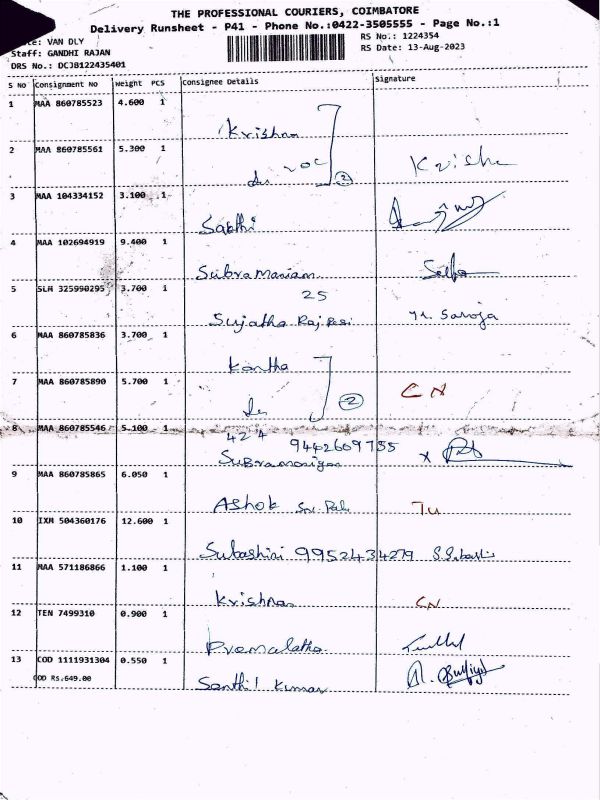 THE PROFESSIONAL COURIERS, COIMBATORE
Delivery Runsheet - P41 - Phone No.:0422-3505555 - Page No.:1
VAN DLY
RS No.: 1224354
Staff: GANDHI RAJAN
RS Date: 13-Aug-2023
DRS No.: DCJB122435401
S NO Consignment No Weight PCS Consignee Details Signature
1 MAA 860785523 4.600 1
Krishna
2 MAA 860785561 5.300 1
2
3 MAA 104334152 3.100 1
Sakthi
4 MAA 102694919 9.400 1
Subramaniam
5 SLM 325990295 3.700 1
25
Sujatha
6 MAA 860785836 3.700 1
Kantha
7 MAA 860785890 5.700 1
2 CN
8 MAA 860785546 5.100 1
424 9442609755 x
9 MAA 860785865 6.050 1
Ashok
10 IXM 504360176 12.600 1
Subashini 9952434279
11 MAA 571186866 1.100 1
Krishnan CN
12 TEN 7499310 0.900 1
Premalatha
13 COD 1111931304 0.550 1
COD Rs.649.00
Senthil Kumar